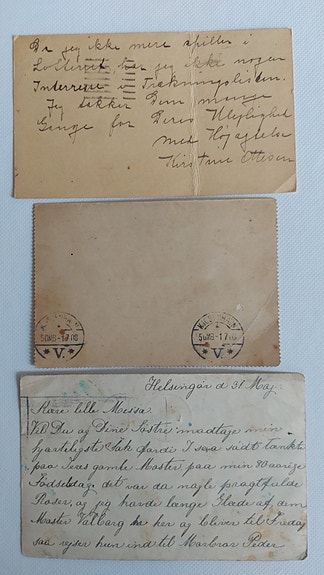 Da jeg ikke mere spiller i
Lotteriet, har jeg ikke nogen
Interesse i Trækningslisten.
Jeg takker Dem mange
Gange for Deres Ulejlighed
med Højagtelse
Kirstine Ottesen
KØBENHAVN
5OMB-1708
V.
KØBENHAVN
5OMB-1708
V.
Helsingør d 31 Maj
Kære lille Messa.
Vil Du og Dine Søstre modtage min
hjerteligste Tak fordi I saa sødt tænkte
paa Deres gamle Moster paa min 80 aarige
Fødselsdag. det var da nogle pragtfulde
Roser, og jeg havde længe Glæde af dem
Moster Valborg her og bliver til Fredag,
saa rejser hun ind til Morbror Peder